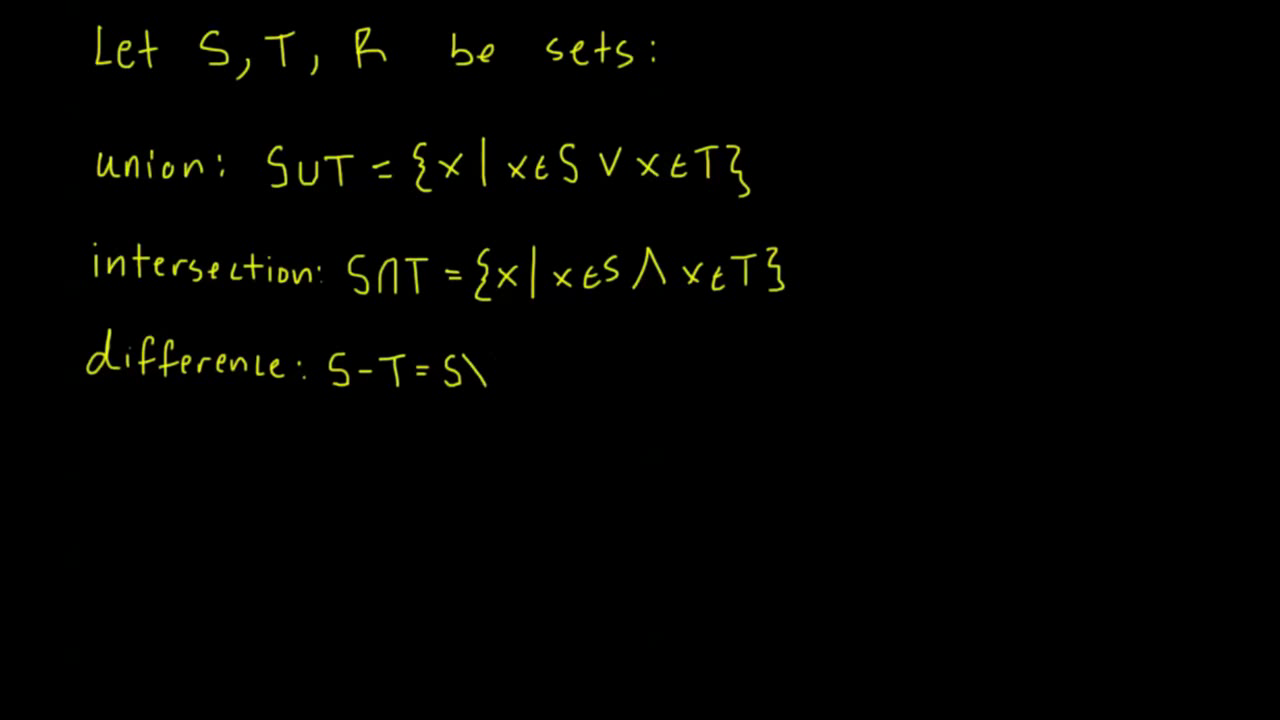 Let S, T, R be sets:
union: S∪T = {x | x∈S ∨ x∈T}
intersection: S∩T = {x | x∈S ∧ x∈T}
difference: S-T = S\